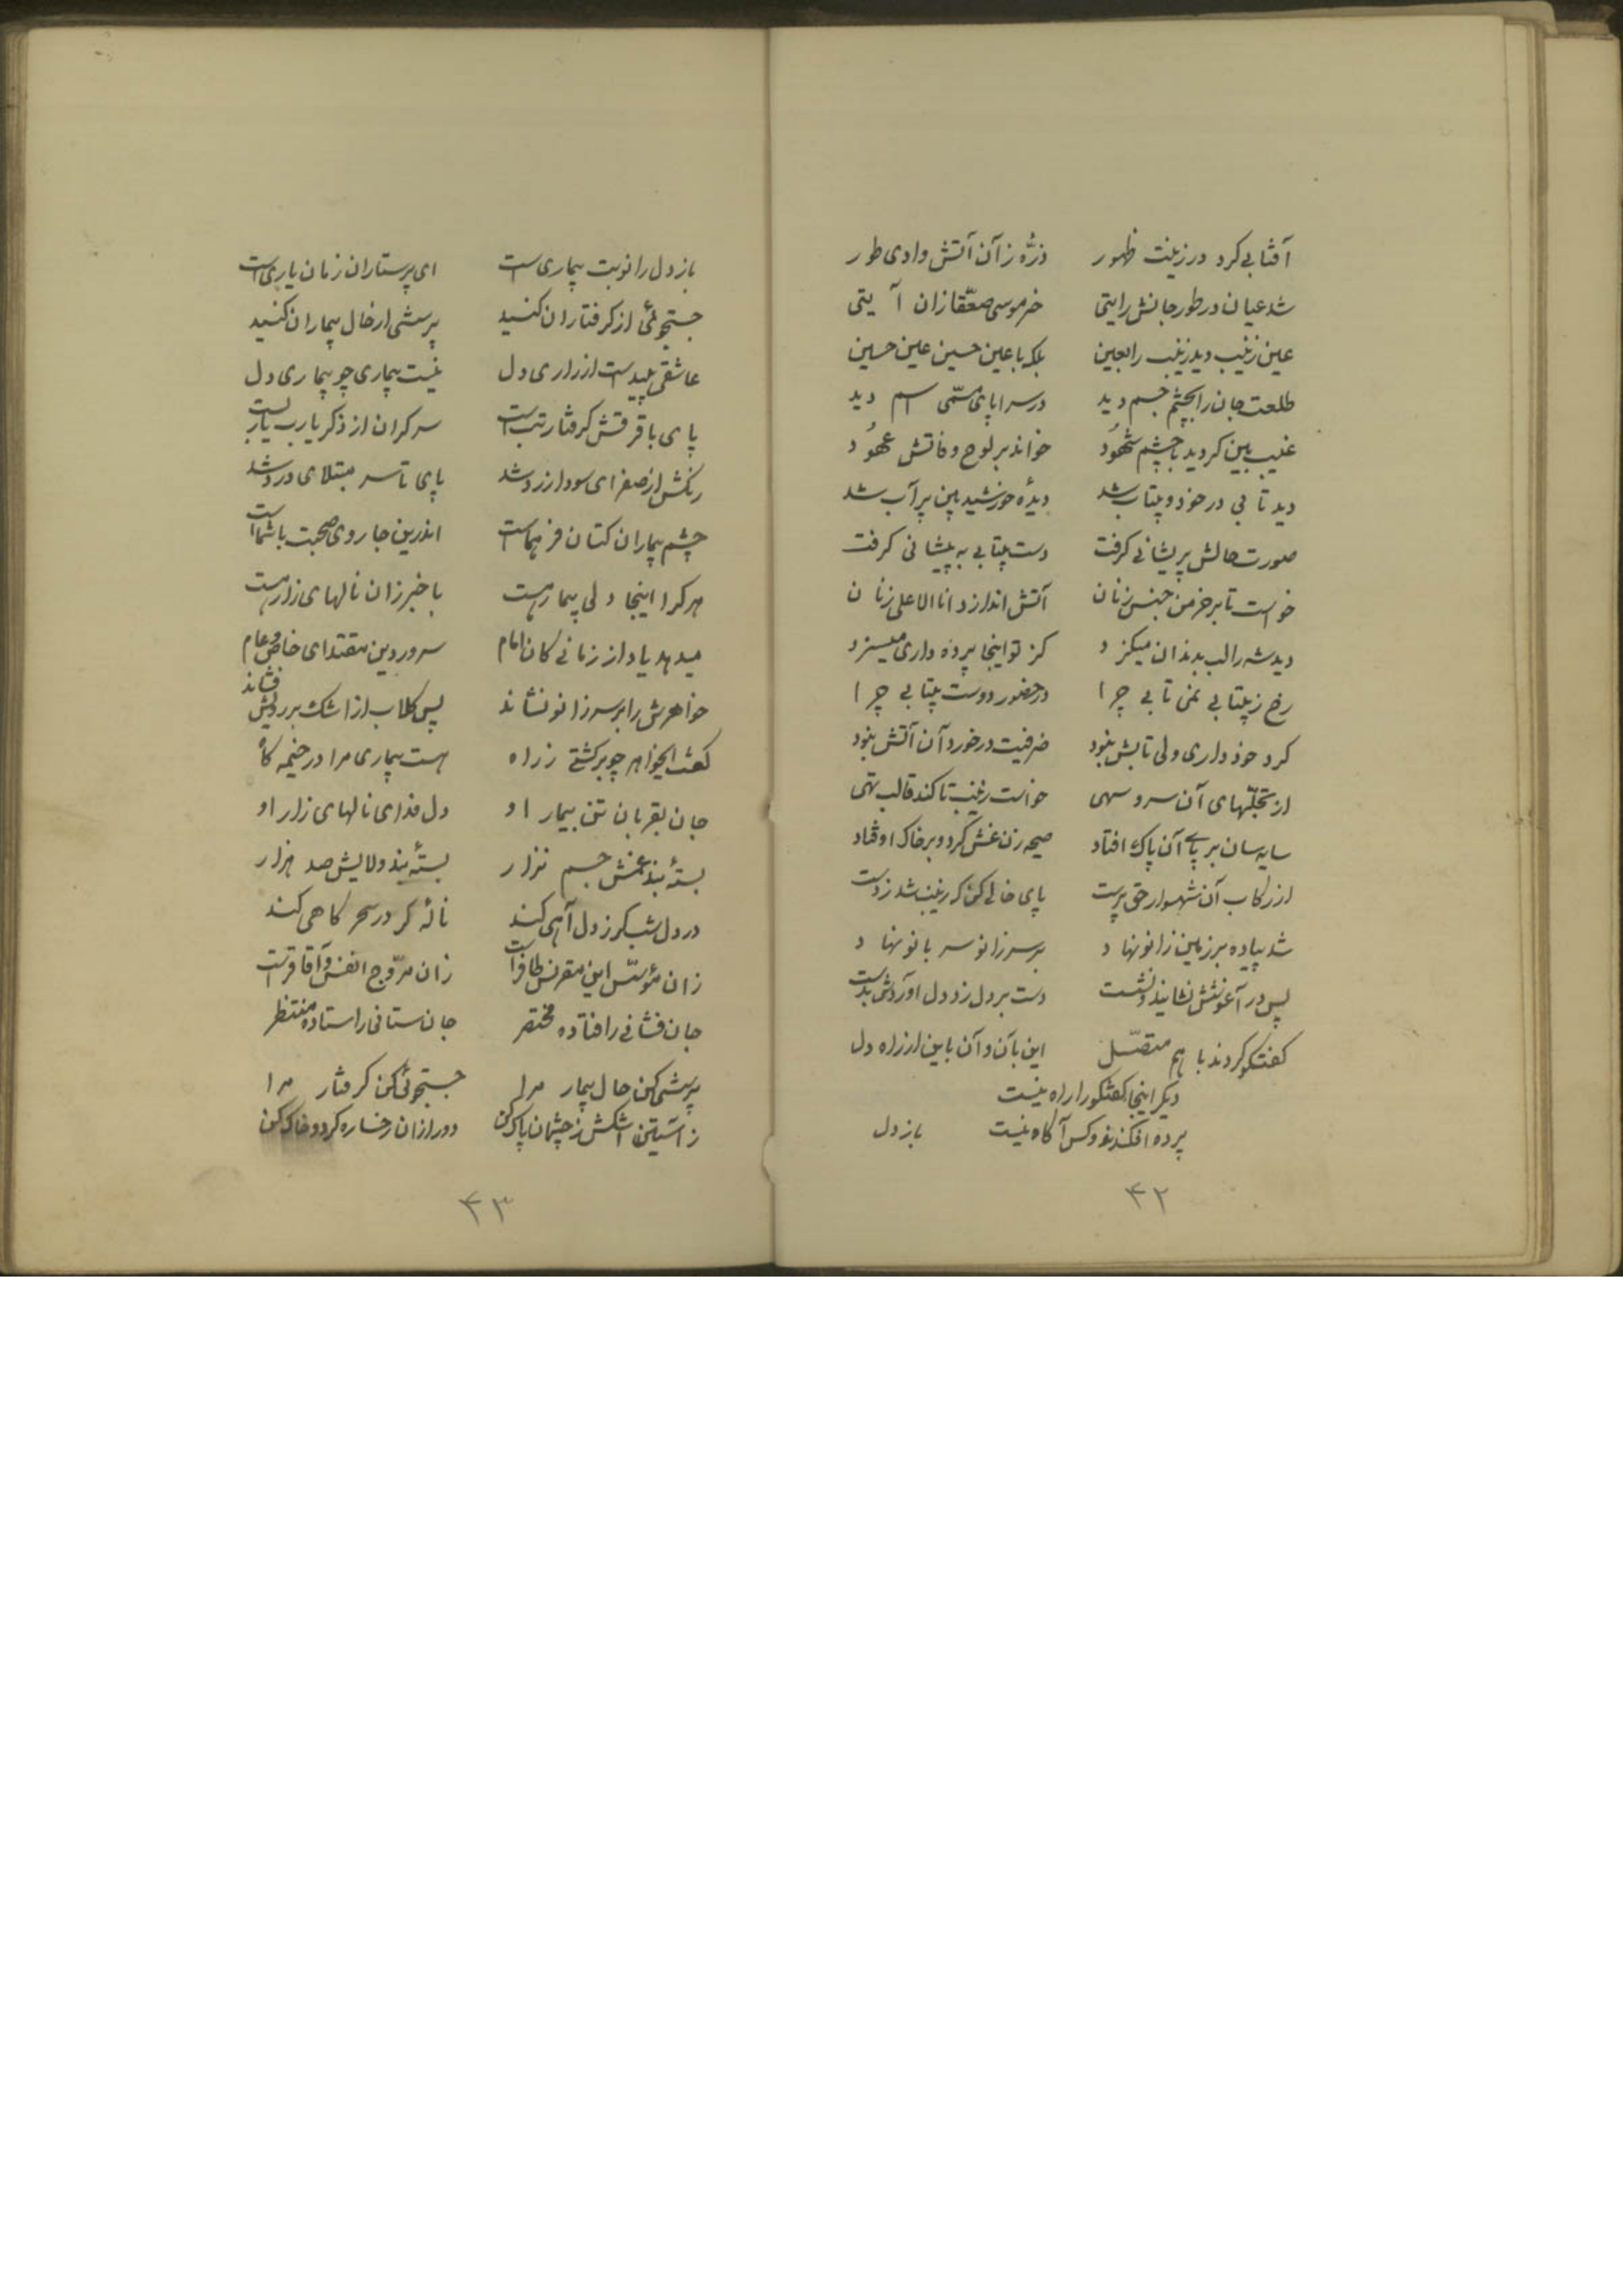 آفتابی کرد در زینت ظهور ذرّهٔ زان آتش وادی طور
شد عیان در طور جانش رایتی خر موسی صعقا زان آیتی
عین زینب دید زینب را بعین بلکه با عین حسین عین حسین
طلعت جان را بچشم جسم دید در سراپای مسمّی اسم دید
غیب بین کردید با چشم شهُود خواند بر لوح وفا نقش عهُود
دید تابی در خود و بیتاب شد دیدهٔ خورشید بین پر آب شد
صورت حالش پریشانی کرفت دست بیتابی به پیشانی کرفت
خواست تا بر خرمن جنس زنان آتش اندازد انا الاعلی زنان
دید شه را لب بدندان میکزد کز تو اینجا پرده داری میسزد
رخ ز بیتابی نمی تابی چرا در حضور دوست بیتابی چرا
کرد خودداری ولی تابش نبود ضرفیت در خورد آن آتش نبود
از تجلّیهای آن سرو سهی خواست زینب تا کند قالب تهی
سایه سان بر پای آن پاک افتاد صیحه زن غش کرد و بر خاک اوفتاد
از رکاب آن شهسوار حق پرست پای خالی کرد که زینب شد ز دست
شد پیاده بر زمین زانو نهاد بر سر زانو سر بانو نهاد
پس در آغوشش نشانید و نشست دست بر دل زد دل آوردش بدست
کفتکو کردند با هم متصّل این بآن و آن باین از راه دل
دیکر اینجا کفتکو را راه نیست
پرده افکندند و کس آکاه نیست
باز دل
۴۲
باز دل را نوبت بیماری است ای پرستاران زمان یاری است
جستجوئی از کرفتاران کنید پرسشی از حال بیماران کنید
عاشقی پیداست از زاری دل نیست بیماری چو بیماری دل
پای تا فرقش کرفتار تب است سر کران از ذکر یارب یارب است
رنکش از صفرای سودا زرد شد پای تا سر مبتلای درد شد
چشم بیماران کتان فرهماست اندرین جا روی صحبت باشماست
هر کرا اینجا دلی بیمار هست با خبر زان نالهای زار هست
میدهد یاد از زمانی کان امام سرور دین مقتدای خاص و عام
خواهرش را بر سر زانو نشاند پس کلاب از اشک بر رویش فشاند
کفت ایخواهر چو برکشتی ز راه هست بیماری مرا در خیمه کاه
جان بقربان تن بیمار او دل فدای نالهای زار او
بستهٔ بند غمش جسم نزار بستهٔ بند ولایش صد هزار
در دل شب کر ز دل آهی کند نالهٔ کر در سحر کاهی کند
زان مؤسّس این مقرنس طاقراست زان مروّج انفس و آفاقراست
جان فشانی را فتاده مختصر جان ستانی را ستاده منتظر
پرسشی کن حال بیمار مرا جستجوئی کن کرفتار مرا
ز آستین اشکش ز چشمان پاک کن دور از ان رخساره کرد و خاک کن
۴۳